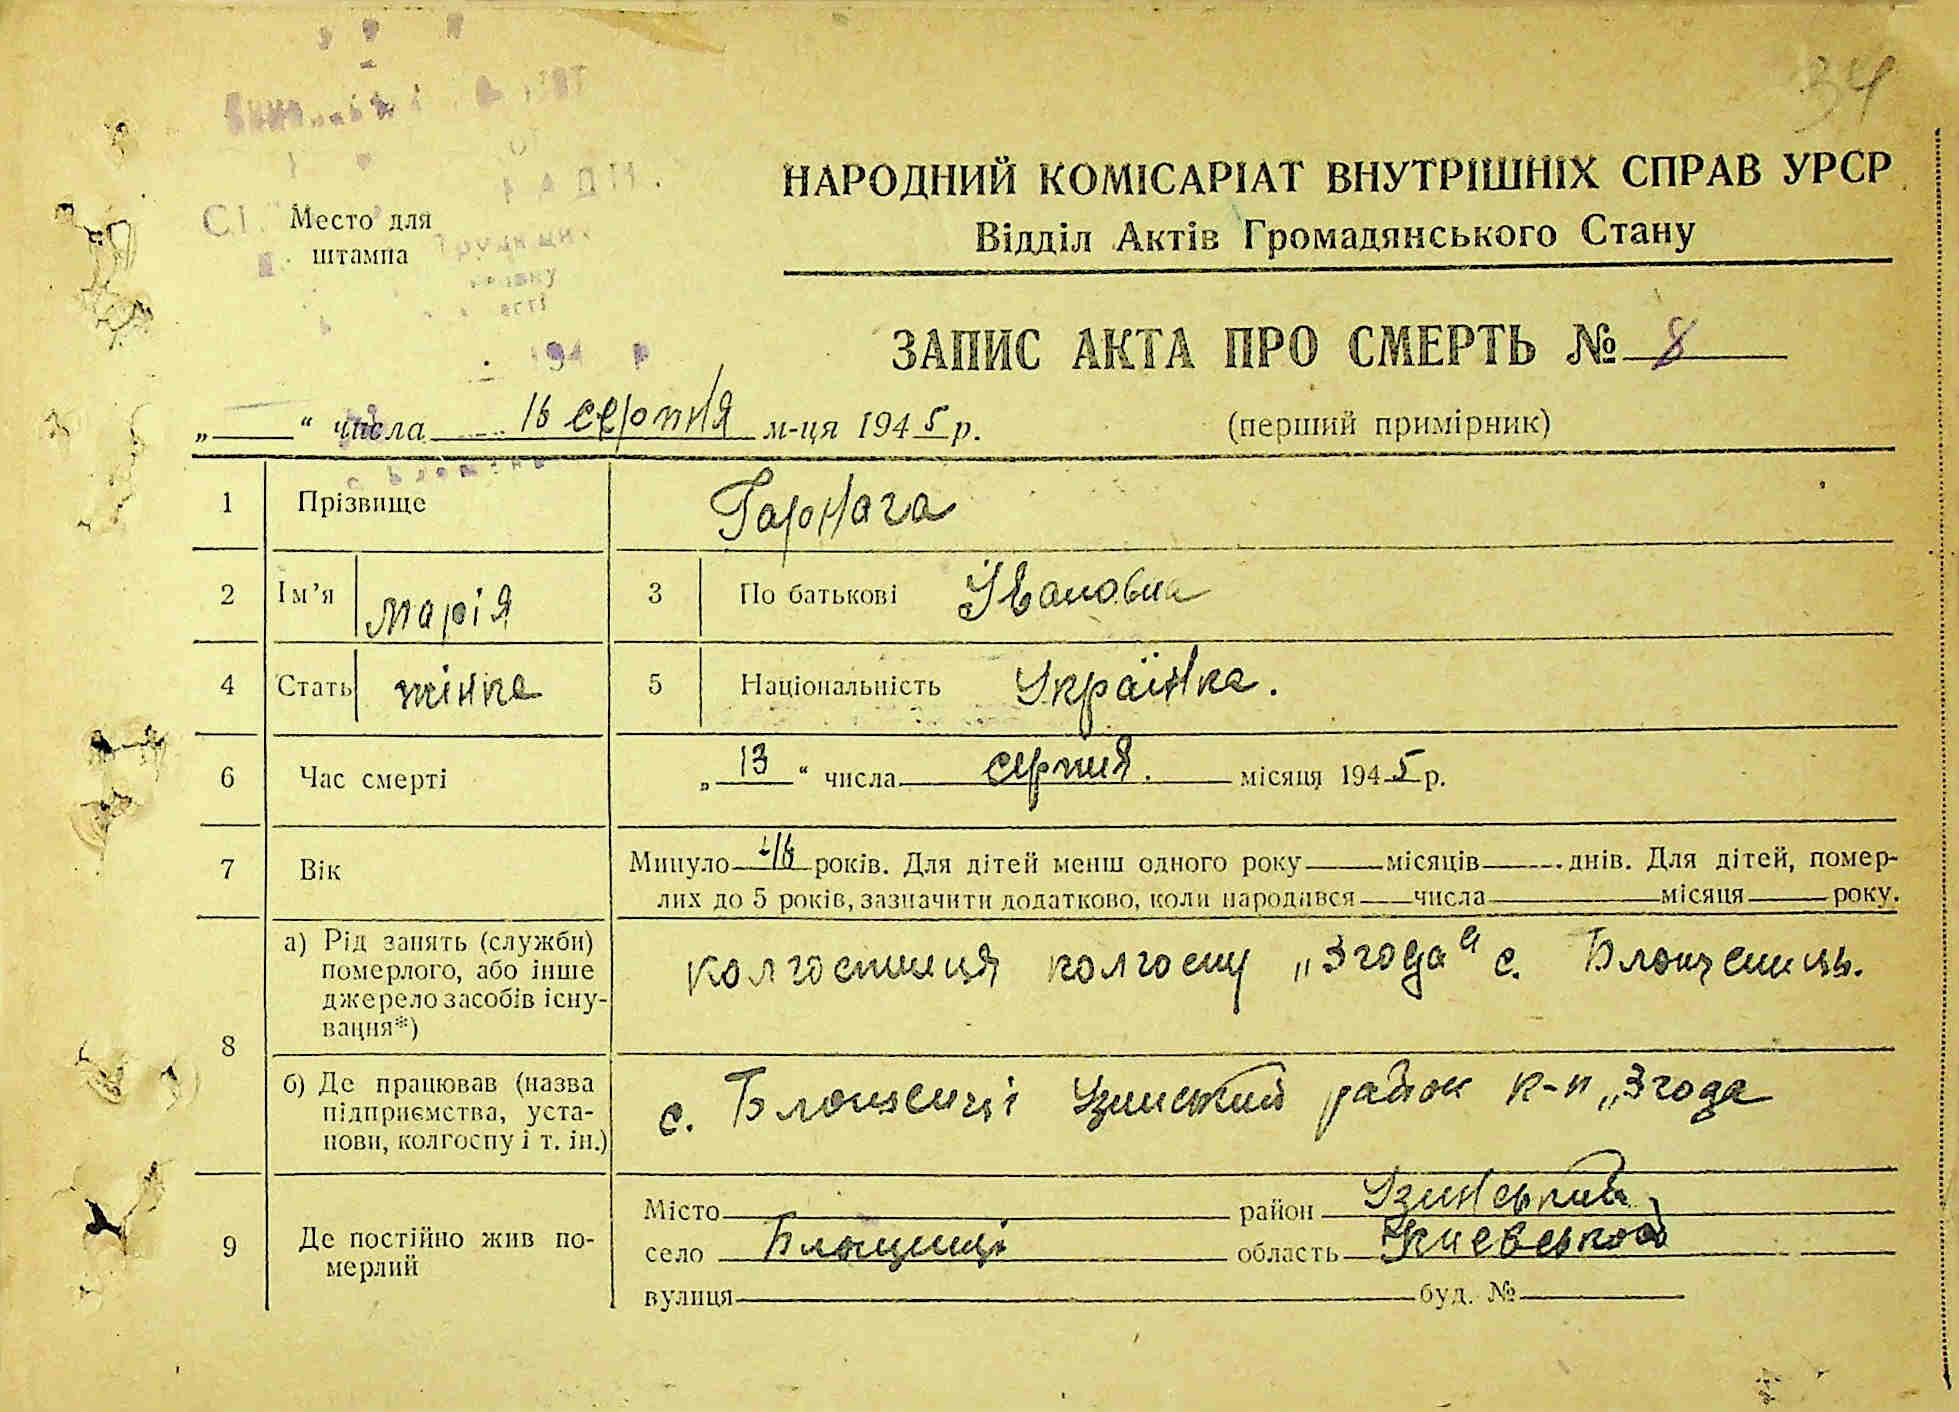 34
НАРОДНИЙ КОМІСАРІАТ ВНУТРІШНІХ СПРАВ УРСР
Відділ Актів Громадянського Стану
Место для
штампа
194 р
ЗАПИС АКТА ПРО СМЕРТЬ № 8
„ “ числа 16 серпня м-ця 1945 р.
(перший примірник)
1 Прізвище Гарнага
2 Ім’я Марія 3 По батькові Івановна
4 Стать жінка 5 Національність Українка.
6 Час смерті „13“ числа серпня. місяця 1945 р.
7 Вік Минуло років. Для дітей менш одного року місяців днів. Для дітей, помер-
лих до 5 років, зазначити додатково, коли народився числа місяця року.
8 а) Рід занять (служби)
померлого, або інше
джерело засобів існу-
вання*)
колгоспниця колгоспу „Згода“ с. Блощенць.
б) Де працював (назва
підприємства, уста-
нови, колгоспу і т. ін.)
с. Блощенці Узинский район к-п „Згода
9 Де постійно жив по-
мерлий
Місто район Узинський
село Блощинці область Киевської
вулиця буд. №